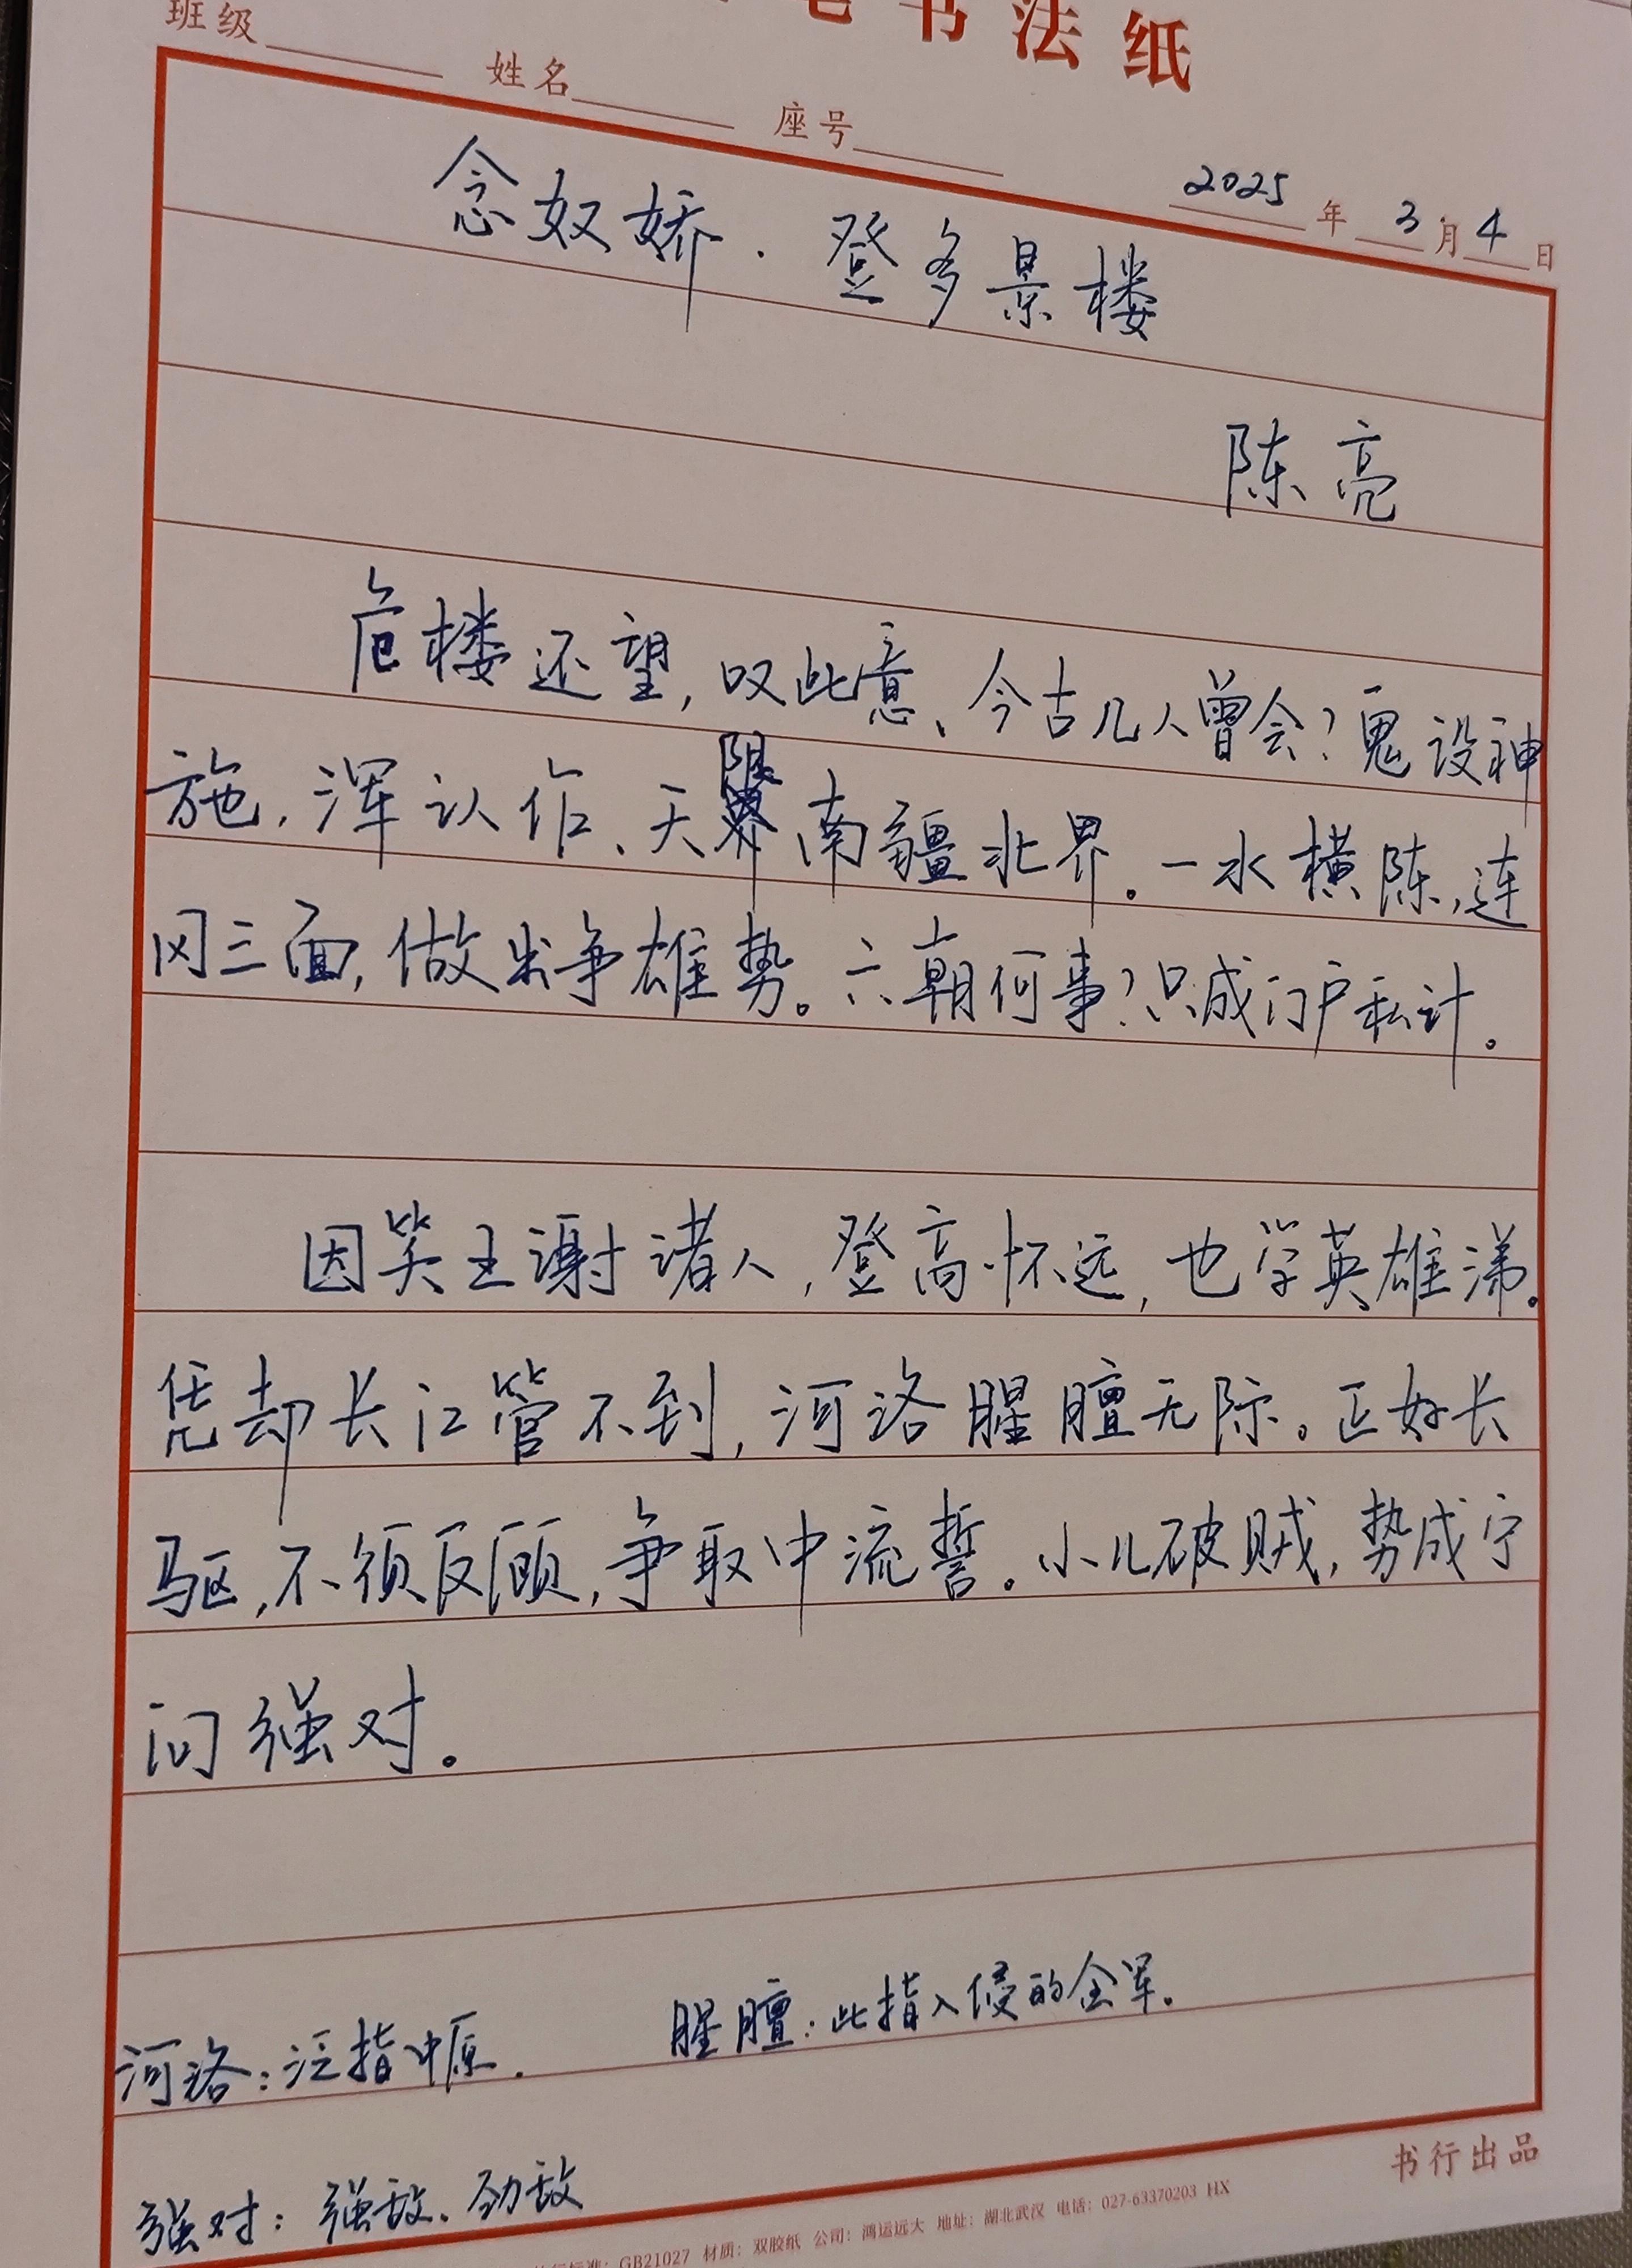 书法纸
班级 姓名 座号
2025年3月4日
念奴娇·登多景楼
陈亮
危楼还望,叹此意、今古几人曾会?鬼设神
施,浑认作、天限南疆北界。一水横陈,连
冈三面,做出争雄势。六朝何事?只成门户私计。
因笑王谢诸人,登高怀远,也学英雄涕。
凭却长江管不到,河洛腥膻无际。正好长
驱,不须反顾,争取中流誓。小儿破贼,势成宁
问强对。
河洛:泛指中原. 腥膻:此指入侵的金军.
强对:强敌、劲敌
书行出品
GB21027 材质:双胶纸 公司:鸿运远大 地址:湖北武汉 电话:027-63370203 HX